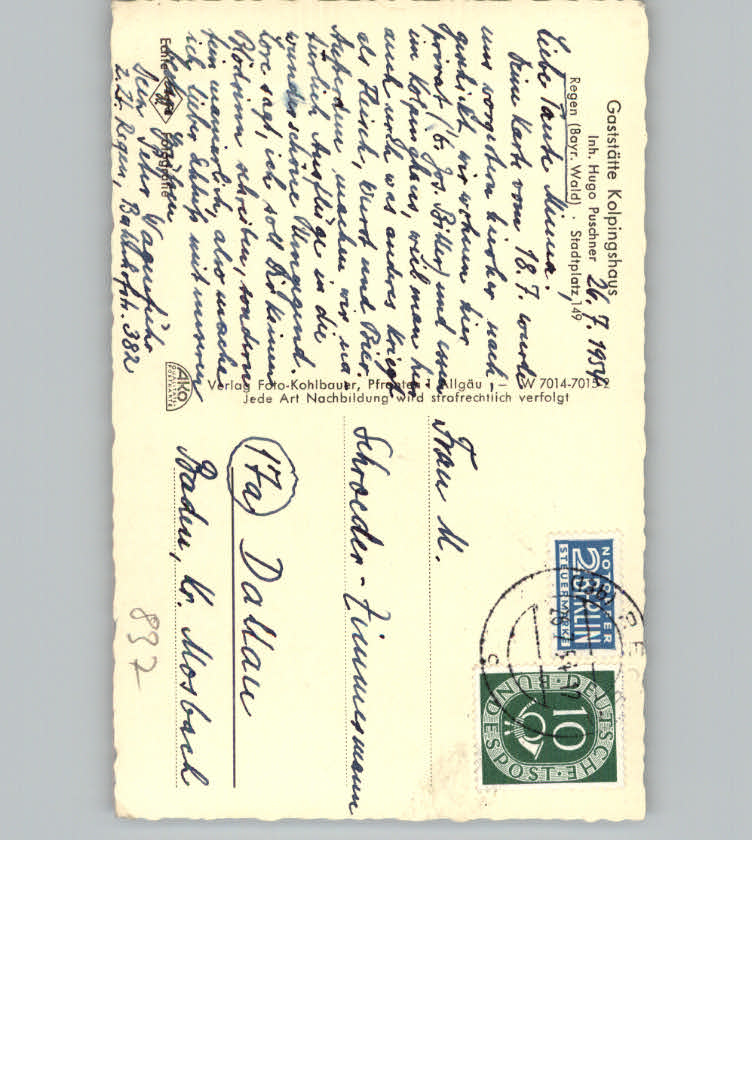 Gaststätte Kolpingshaus
Inh. Hugo Puschner
Regen (Bayr. Wald) · Stadtplatz 149
26.7.1954
Liebe Tante Minna.
Deine Karte vom 18.7. wurde
uns vorgestern hierher nach
geschickt, wir wohnen hier
privat (b. Jos. Bittler) und essen
im Kolpinghaus, weil man hier
auch noch was andres kriegt
als Fleisch, Wurst und Bier.
Ausserdem machen wir na
türlich Ausflüge in die
wunderschöne Umgegend.
Lore sagt, ich soll Dir keinen
Blödsinn schreiben, sondern
fein manierlich, also mache
ich lieber Schluss mit unseren
Grüssen
Dein Peter Wagenführ
z. Zt. Regen, 382
Echte Fotografie
AKO
POSTKARTE
Verlag Foto-Kohlbauer, Pfronten 1 Allgäu — SW 7014-7015/2
Jede Art Nachbildung wird strafrechtlich verfolgt
Frau M.
Schroeder-Zimmermann
(17a) Dallau
Baden, Kr. Mosbach
837
NOTOPFER
2 BERLIN
STEUERMARKE
DEUTSCHE
10
BUNDESPOST